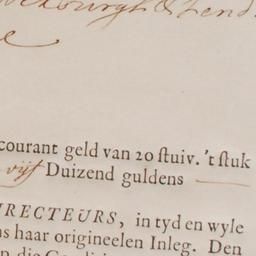 & Lend
courant geld van 20 stuiv. 't stuk
vijf Duizend guldens
IRECTEURS, in tyd en wyle
ns haar origineelen Inleg. Den